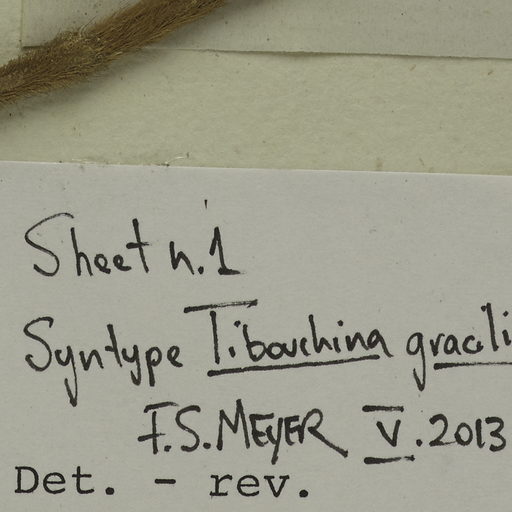 Sheet n.1
Syntype Tibouchina gracili
F.S. MEYER V.2013
Det. - rev.